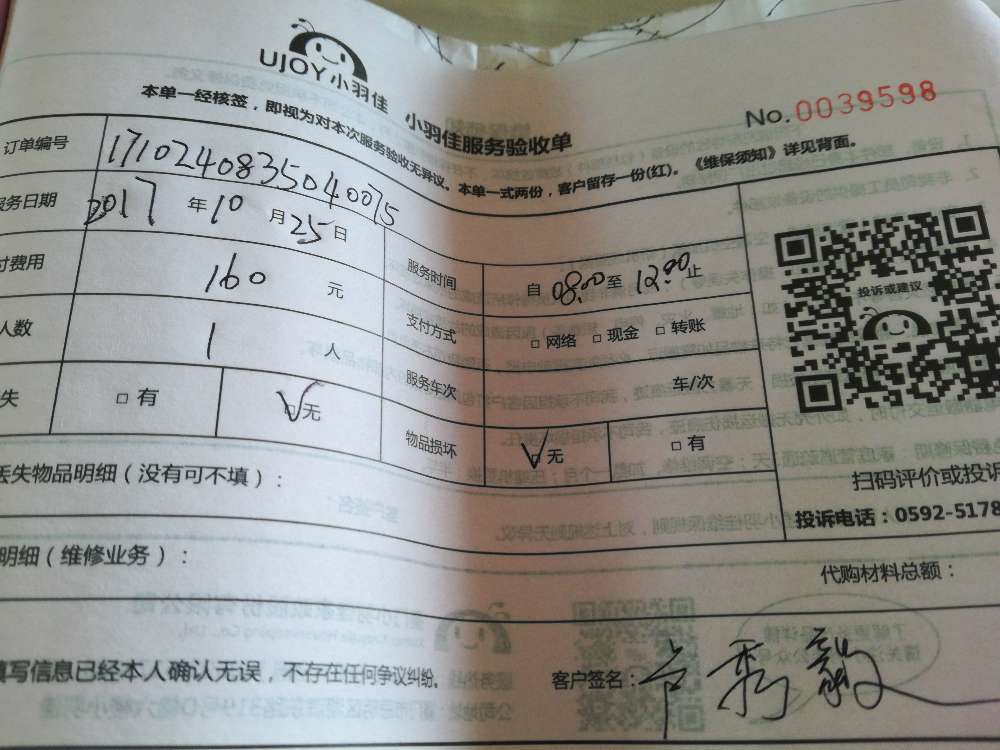 UJOY小羽佳 小羽佳服务验收单
No.0039598
本单一经核签，即视为对本次服务验收无异议。本单一式两份，客户留存一份(红)。《维保须知》详见背面。
订单编号 1710240835040075
务日期 2017 年 10 月 25 日 服务时间 自 08:00 至 12:00 止
付费用 160 元 支付方式 □ 网络 □ 现金 □ 转账
人数 1 人 服务车次 车/次
失 □ 有 □ 无 物品损坏 □ 无 □ 有
投诉或建议
扫码评价或投诉
投诉电话：0592-5178
丢失物品明细（没有可不填）：
明细（维修业务）：
代购材料总额：
填写信息已经本人确认无误，不存在任何争议纠纷。
客户签名：